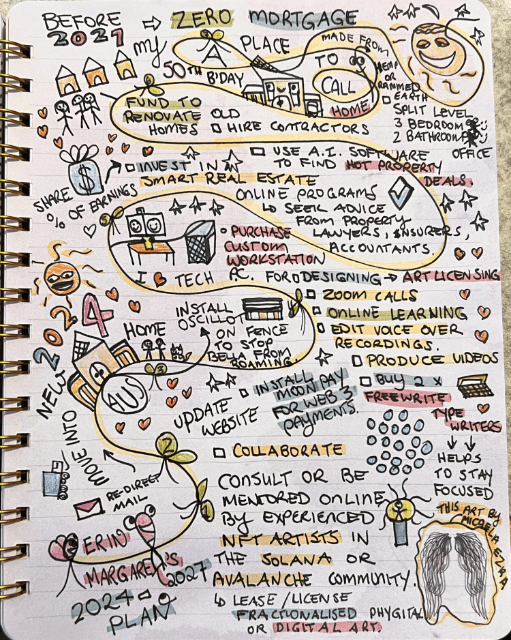 BEFORE ⇒ ZERO MORTGAGE
2027
my 50TH B'DAY
A PLACE TO CALL HOME
MADE FROM
HEMP OR RAMMED
EARTH
SPLIT LEVEL
3 BEDROOM
2 BATHROOM
OFFICE
FUND TO
RENOVATE OLD
HOMES □ HIRE CONTRACTORS
$
SHARE
% OF EARNINGS
□ INVEST IN
SMART REAL ESTATE
□ USE A.I. SOFTWARE
TO FIND HOT PROPERTY
DEALS.
ONLINE PROGRAMS
↳ SEEK ADVICE
FROM PROPERTY
LAWYERS, INSURERS,
ACCOUNTANTS.
□ PURCHASE
CUSTOM
WORKSTATION
PC. FOR □ DESIGNING → ART LICENSING
I TECH
□ ZOOM CALLS
□ ONLINE LEARNING
□ EDIT VOICE OVER
RECORDINGS.
□ PRODUCE VIDEOS
NEW 2024 HOME
INSTALL
OSCILLOT
ON FENCE
TO STOP
BELLA FROM
ROAMING.
AUS
3
MOVE INTO
□ INSTALL
MOON PAY
FOR WEB 3
PAYMENTS.
UPDATE
WEBSITE
□ BUY 2 x
FREEWRITE
TYPE
WRITERS
HELPS
TO STAY
FOCUSED
□ COLLABORATE
2
RE-DIRECT
MAIL
1
CONSULT OR BE
MENTORED ONLINE
BY EXPERIENCED
NFT ARTISTS IN
THE SOLANA OR
AVALANCHE COMMUNITY.
↳ LEASE/LICENSE
FRACTIONALISED PHYGITAL
OR DIGITAL ART.
ERIN
MARGARET'S
2024 → 2027
PLAN
THIS ART BY